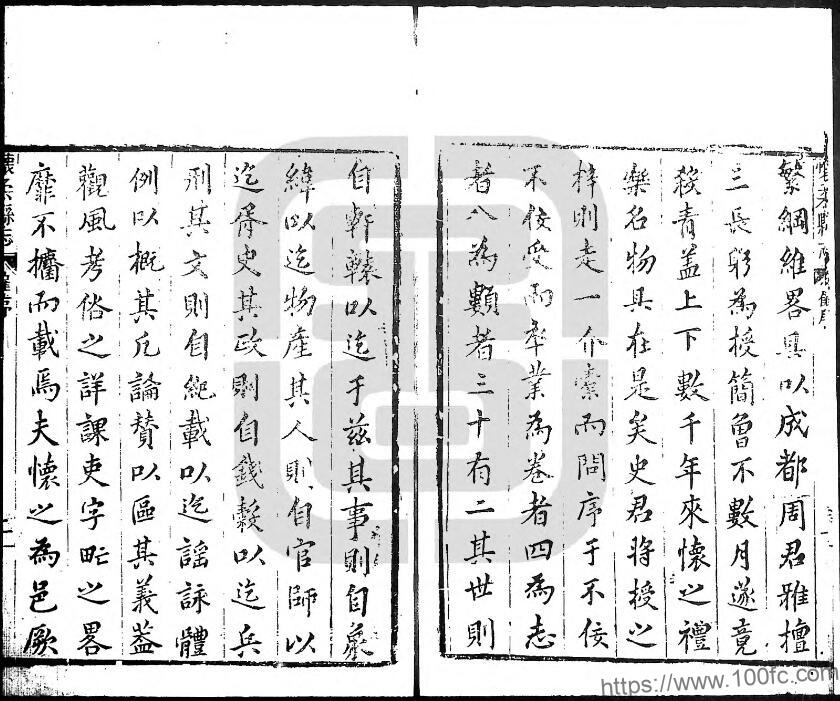 繁綱維畧具以成都周君雅擅
三長躬為授簡曾不數月遂竟
殺青蓋上下數千年來懷之禮
樂名物具在是矣史君将授之
梓則走一介橐而問序于不佞
不佞受而卒業為卷者四為志
者八為類者三十有二其世則
自軒轅以迄于茲其事則自象
緯以迄物產其人則自官師以
迄胥史其政則自錢穀以迄兵
刑其文則自紀載以迄謡詠體
例以概其凡論贊以區其義葢
觀風考俗之詳課吏字甿之畧
靡不擩而載焉夫懷之為邑厥
懷柔縣志
https://www.100fc.com